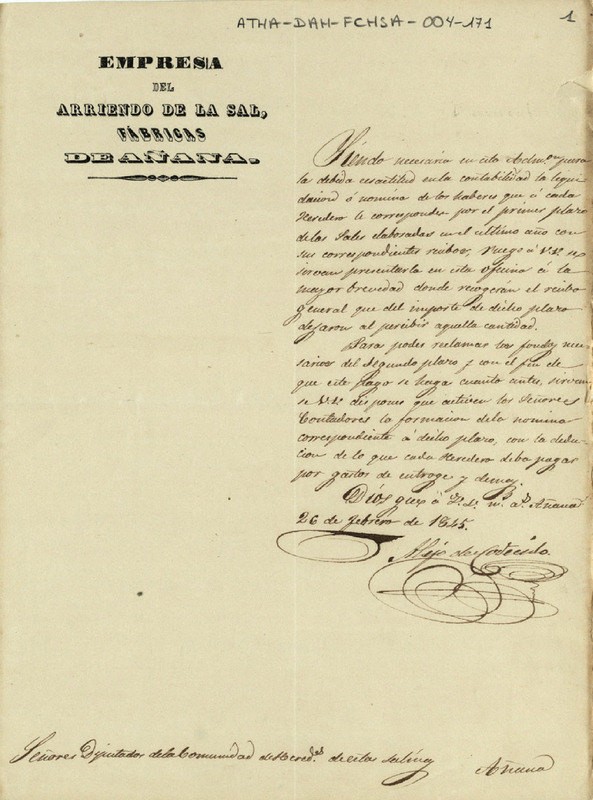 ATHA-DAH-FCHSA-004-171
1
EMPRESA
DEL
ARRIENDO DE LA SAL,
FÁBRICAS
DE AÑANA.
Siendo necesaria en esta Admon para
la debida esactitud en la contabilidad la liqui
dacion ó nomina de los haberes que á cada
Heredero le corresponden por el primer plazo
de las Sales elaboradas en el último año con
sus correspondientes recibos, ruego á V.S. se
sirvan presentarla en esta oficina á la
mayor brevedad donde recogerán el recibo
general que del importe de dicho plazo
dejaron al percibir aquella cantidad.
Para poder reclamar los fondos nece
sarios del Segundo plazo y con el fin de
que este pago se haga cuanto antes, sirvan
se V.S. disponer que activen los Señores
Contadores la formacion de la nomina
correspondiente á dicho plazo, con la deduc
cion de lo que cada Heredero deba pagar
por gastos de entroge y demas.
Dios gue á V.S. ms. as. Añana
26 de Febrero de 1845.
Alejo de
Señores Diputados de la Comunidad de Hereds. de estas Salinas
Añana